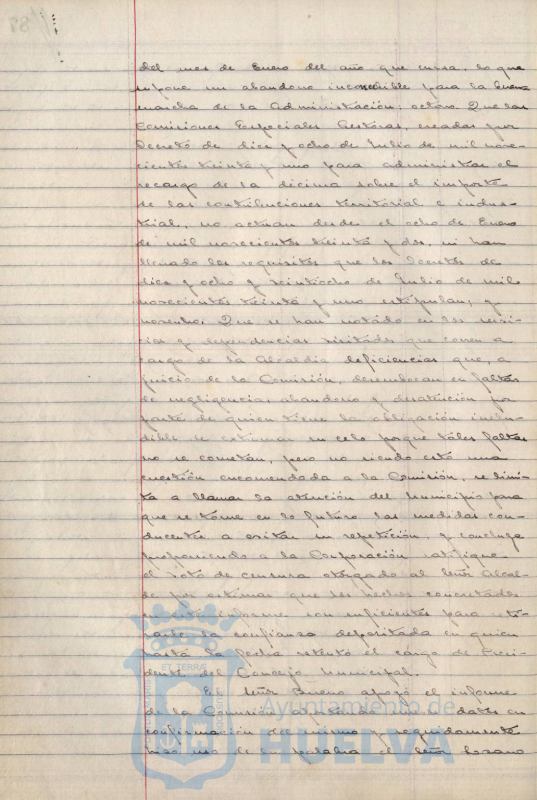 del mes de Enero del año que cursa, lo que
supone un abandono inconcebible para la buena
marcha de la Administración; octavo. Que las
Comisiones Especiales Gestoras, creadas por
Decreto de diez y ocho de Julio de mil nove-
cientos treinta y uno para administrar el
recargo de la décima sobre el importe
de las contribuciones territorial e indus-
trial, no actúan desde el ocho de Enero
de mil novecientos treinta y dos, ni han
llenado los requisitos que los Decretos de
diez y ocho y veintiocho de Julio de mil
novecientos treinta y uno estipulan; y
noveno. Que se han notado en los servi-
cios y dependencias visitadas que corren a
cargo de la Alcaldía deficiencias que, a
juicio de la Comisión, desembocan en faltas
de negligencia, abandono y desatención por
parte de quien tiene la obligación inelu-
dible de extremar su celo porque tales faltas
no se cometan, pero no siendo esto una
cuestión encomendada a la Comisión, se limi-
ta a llamar la atención del Municipio para
que se tome en lo futuro las medidas con-
ducentes a evitar su repetición, y concluye
proponiendo a la Corporación ratifique
el voto de censura otorgado al Señor Alcal-
de por estimar que los hechos concretados
en este informe son suficientes para reti-
rarle la confianza depositada en quien
hasta la fecha retentó el cargo de Presi-
dente del Concejo Municipal.
El Señor Bueno apoyó el informe
de la Comisión aportando datos en
confirmación del mismo y seguidamente
hizo uso de la palabra el Señor Lozano
ET TERRÆ
Ayuntamiento de
HUELVA